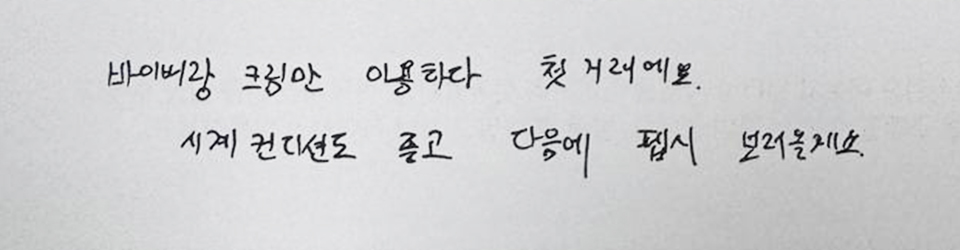 바이버랑 크림만 이용하다 첫 거래에요.
시계 컨디션도 좋고 다음에 펩시 보러올게요.